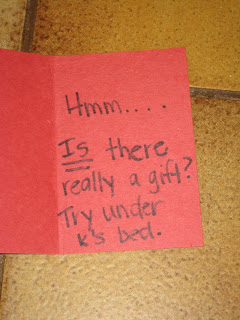 Hmm....
Is there
really a gift?
Try under
K's bed.